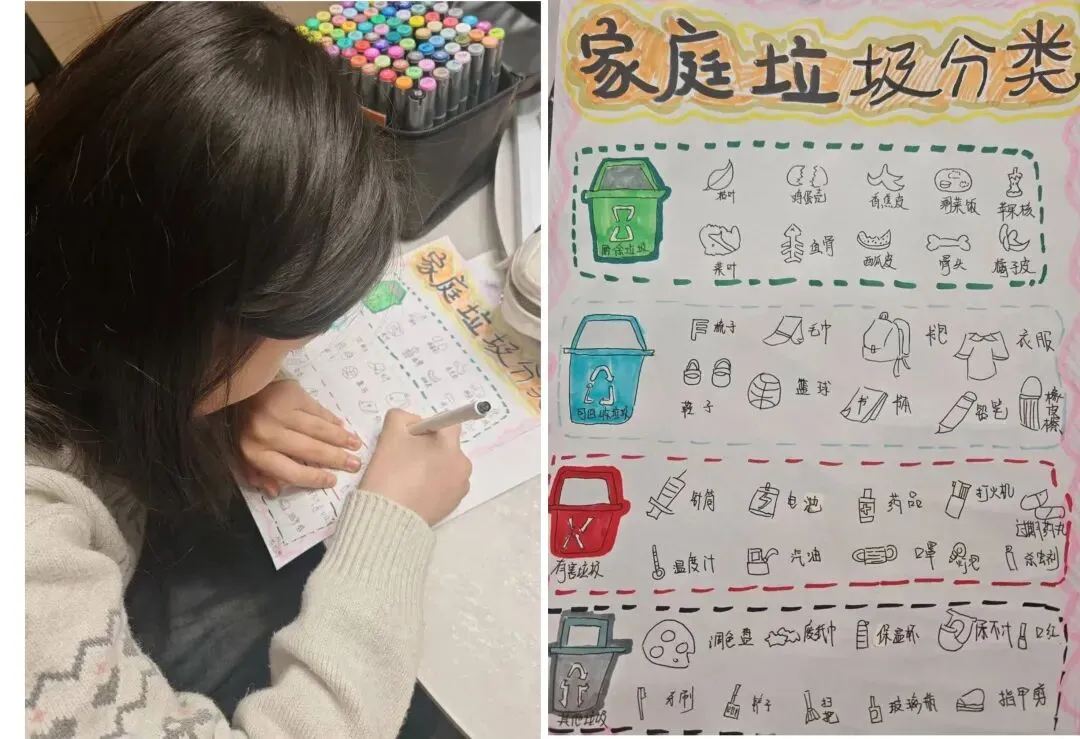 家庭垃圾分
家庭垃圾分类
枯叶 鸡蛋壳 香蕉皮 剩菜饭 苹果核
厨余垃圾
菜叶 鱼骨 西瓜皮 骨头 橘子皮
梳子 毛巾 书包 衣服
可回收垃圾
鞋子 篮球 书 书本 铅笔 橡皮擦
针筒 电池 药品 打火机 过期药丸
有害垃圾
温度计 汽油 口罩 灯泡 杀虫剂
调色盘 废纸巾 保温杯 尿不汁 口红
其他垃圾
牙刷 刷子 扫把 玻璃瓶 指甲剪